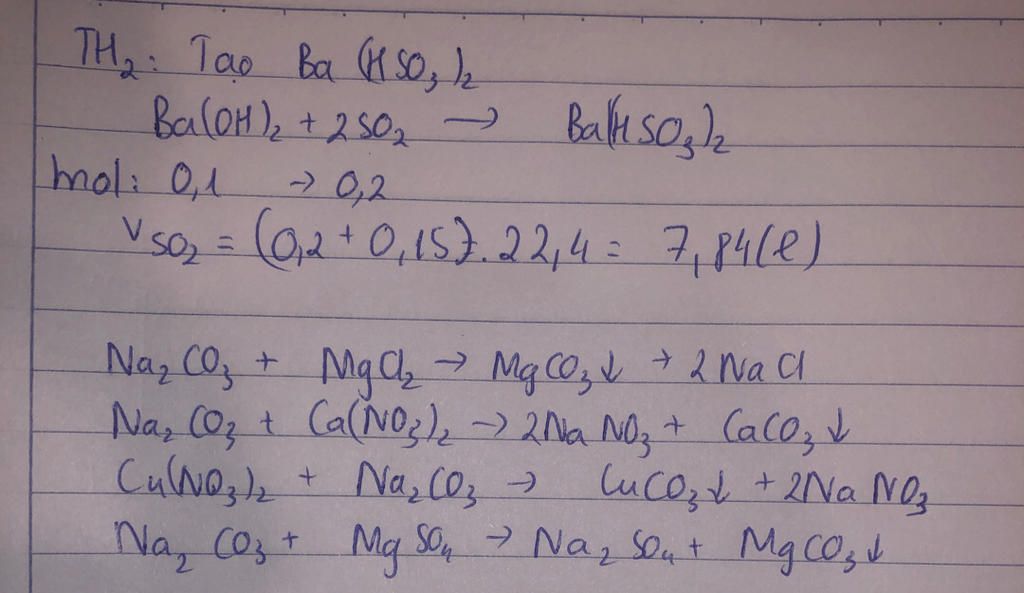 TH₂: Tạo Ba(HSO₃)₂
Ba(OH)₂ + 2SO₂ → Ba(HSO₃)₂
mol: 0,1 → 0,2
V SO₂ = (0,2 + 0,15).22,4 = 7,84(l)
Na₂CO₃ + MgCl₂ → MgCO₃↓ + 2NaCl
Na₂CO₃ + Ca(NO₃)₂ → 2NaNO₃ + CaCO₃↓
Cu(NO₃)₂ + Na₂CO₃ → CuCO₃↓ + 2NaNO₃
Na₂CO₃ + MgSO₄ → Na₂SO₄ + MgCO₃↓